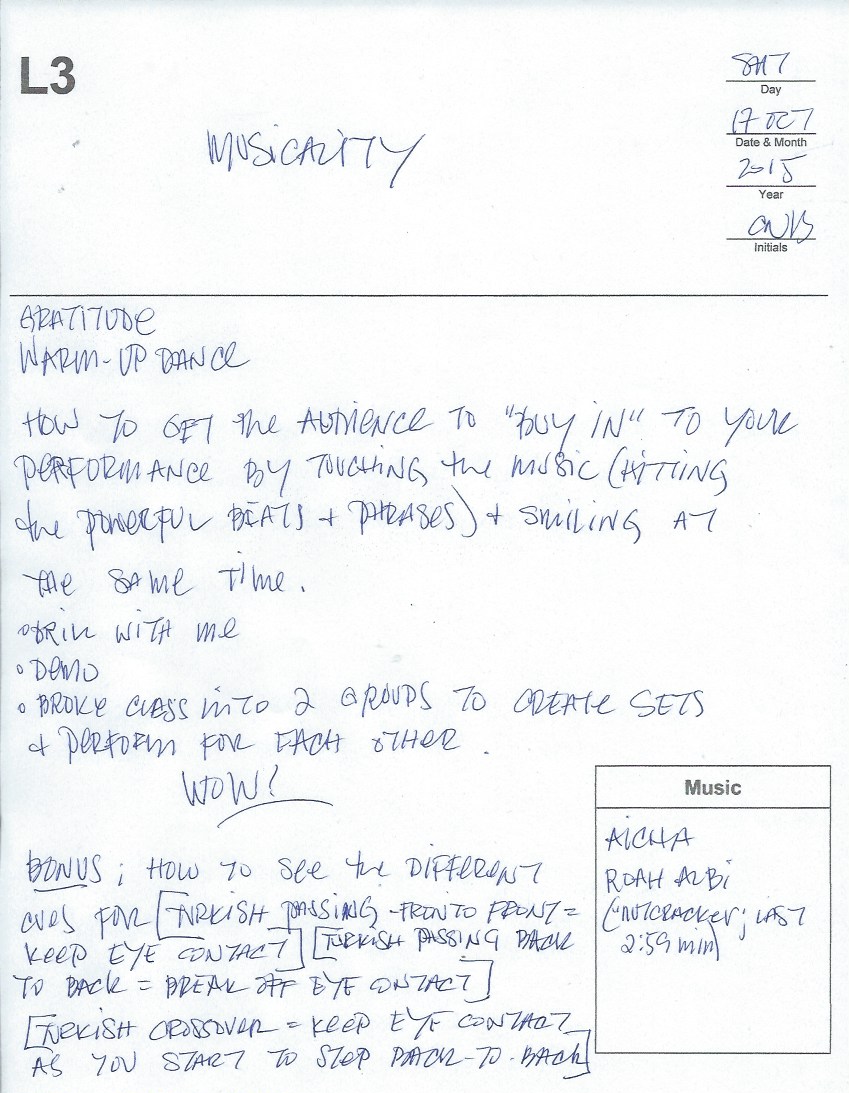 L3
SAT
Day
17 OCT
Date & Month
2015
Year
Initials
MUSICALITY
GRATITUDE
WARM-UP DANCE
HOW TO GET the AUDIENCE TO "BUY IN" TO YOUR
PERFORMANCE BY TOUCHING the MUSIC (HITTING
the POWERFUL BEATS + PHRASES) + SMILING AT
THE SAME TIME.
• DRILL WITH ME
• DEMO
• BROKE CLASS INTO 2 GROUPS TO CREATE SETS
+ PERFORM FOR EACH OTHER.
WOW!
BONUS; HOW TO SEE the DIFFERENT
CUES FOR [TURKISH PASSING - FRONT TO FRONT =
KEEP EYE CONTACT] [TURKISH PASSING BACK
TO BACK = BREAK OFF EYE CONTACT]
[TURKISH CROSSOVER = KEEP EYE CONTACT
AS YOU START TO STEP BACK-TO-BACK]
Music
AICHA
ROAH ALBI
("NUTCRACKER; LAST
2:59 min)